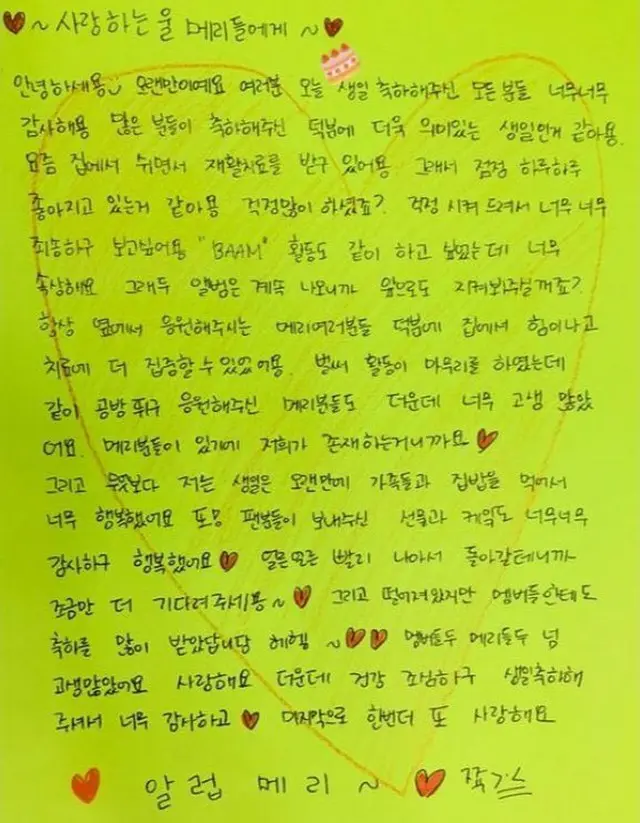 ♥ ~ 사랑하는 울 메리들에게 ~ ♥
안녕하세용 오랜만이예요 여러분 오늘 생일 축하해주신 모든분들 너무너무
감사해용 많은 분들이 축하해주신 덕분에 더욱 의미있는 생일인거 같아용.
요즘 집에서 쉬면서 재활치료를 받구 있어용 그래서 점점 하루하루
좋아지고 있는거 같아용 걱정많이 하셨죠? 걱정 시켜 드려서 너무 너무
죄송하구 보고싶어용 "BAAM" 활동도 같이 하고 싶었는데 너무
속상해요 그래두 앨범은 계속 나오니까 앞으로도 지켜봐주실꺼죠?
항상 옆에서 응원해주시는 메리여러분들 덕분에 집에서 힘이나고
치료에 더 집중할 수 있었어용. 벌써 활동이 마무리를 하였는데
같이 공방 뛰구 응원해주신 메리분들도 더운데 너무 고생 많았
어요. 메리분들이 있기에 저희가 존재하는거니까요 ♥
그리고 무엇보다 저는 생일은 오랜만에 가족들과 집밥을 먹어서
너무 행복했어요 또 팬분들이 보내주신 선물과 케익도 너무너무
감사하구 행복했어요 ♥ 얼른얼른 빨리 나아서 돌아갈테니까
조금만 더 기다려주세용 ~ ♥ 그리고 떨어져있지만 멤버들한테도
축하를 많이 받았답니당 헤헿 ~ ♥♥ 멤버들두 메리들두 넘
고생많았어요 사랑해요 더운데 건강 조심하구 생일축하해
주셔서 너무 감사하고 ♥ 마지막으로 한번더 또 사랑해요
♥ 알럽 메리 ~ ♥